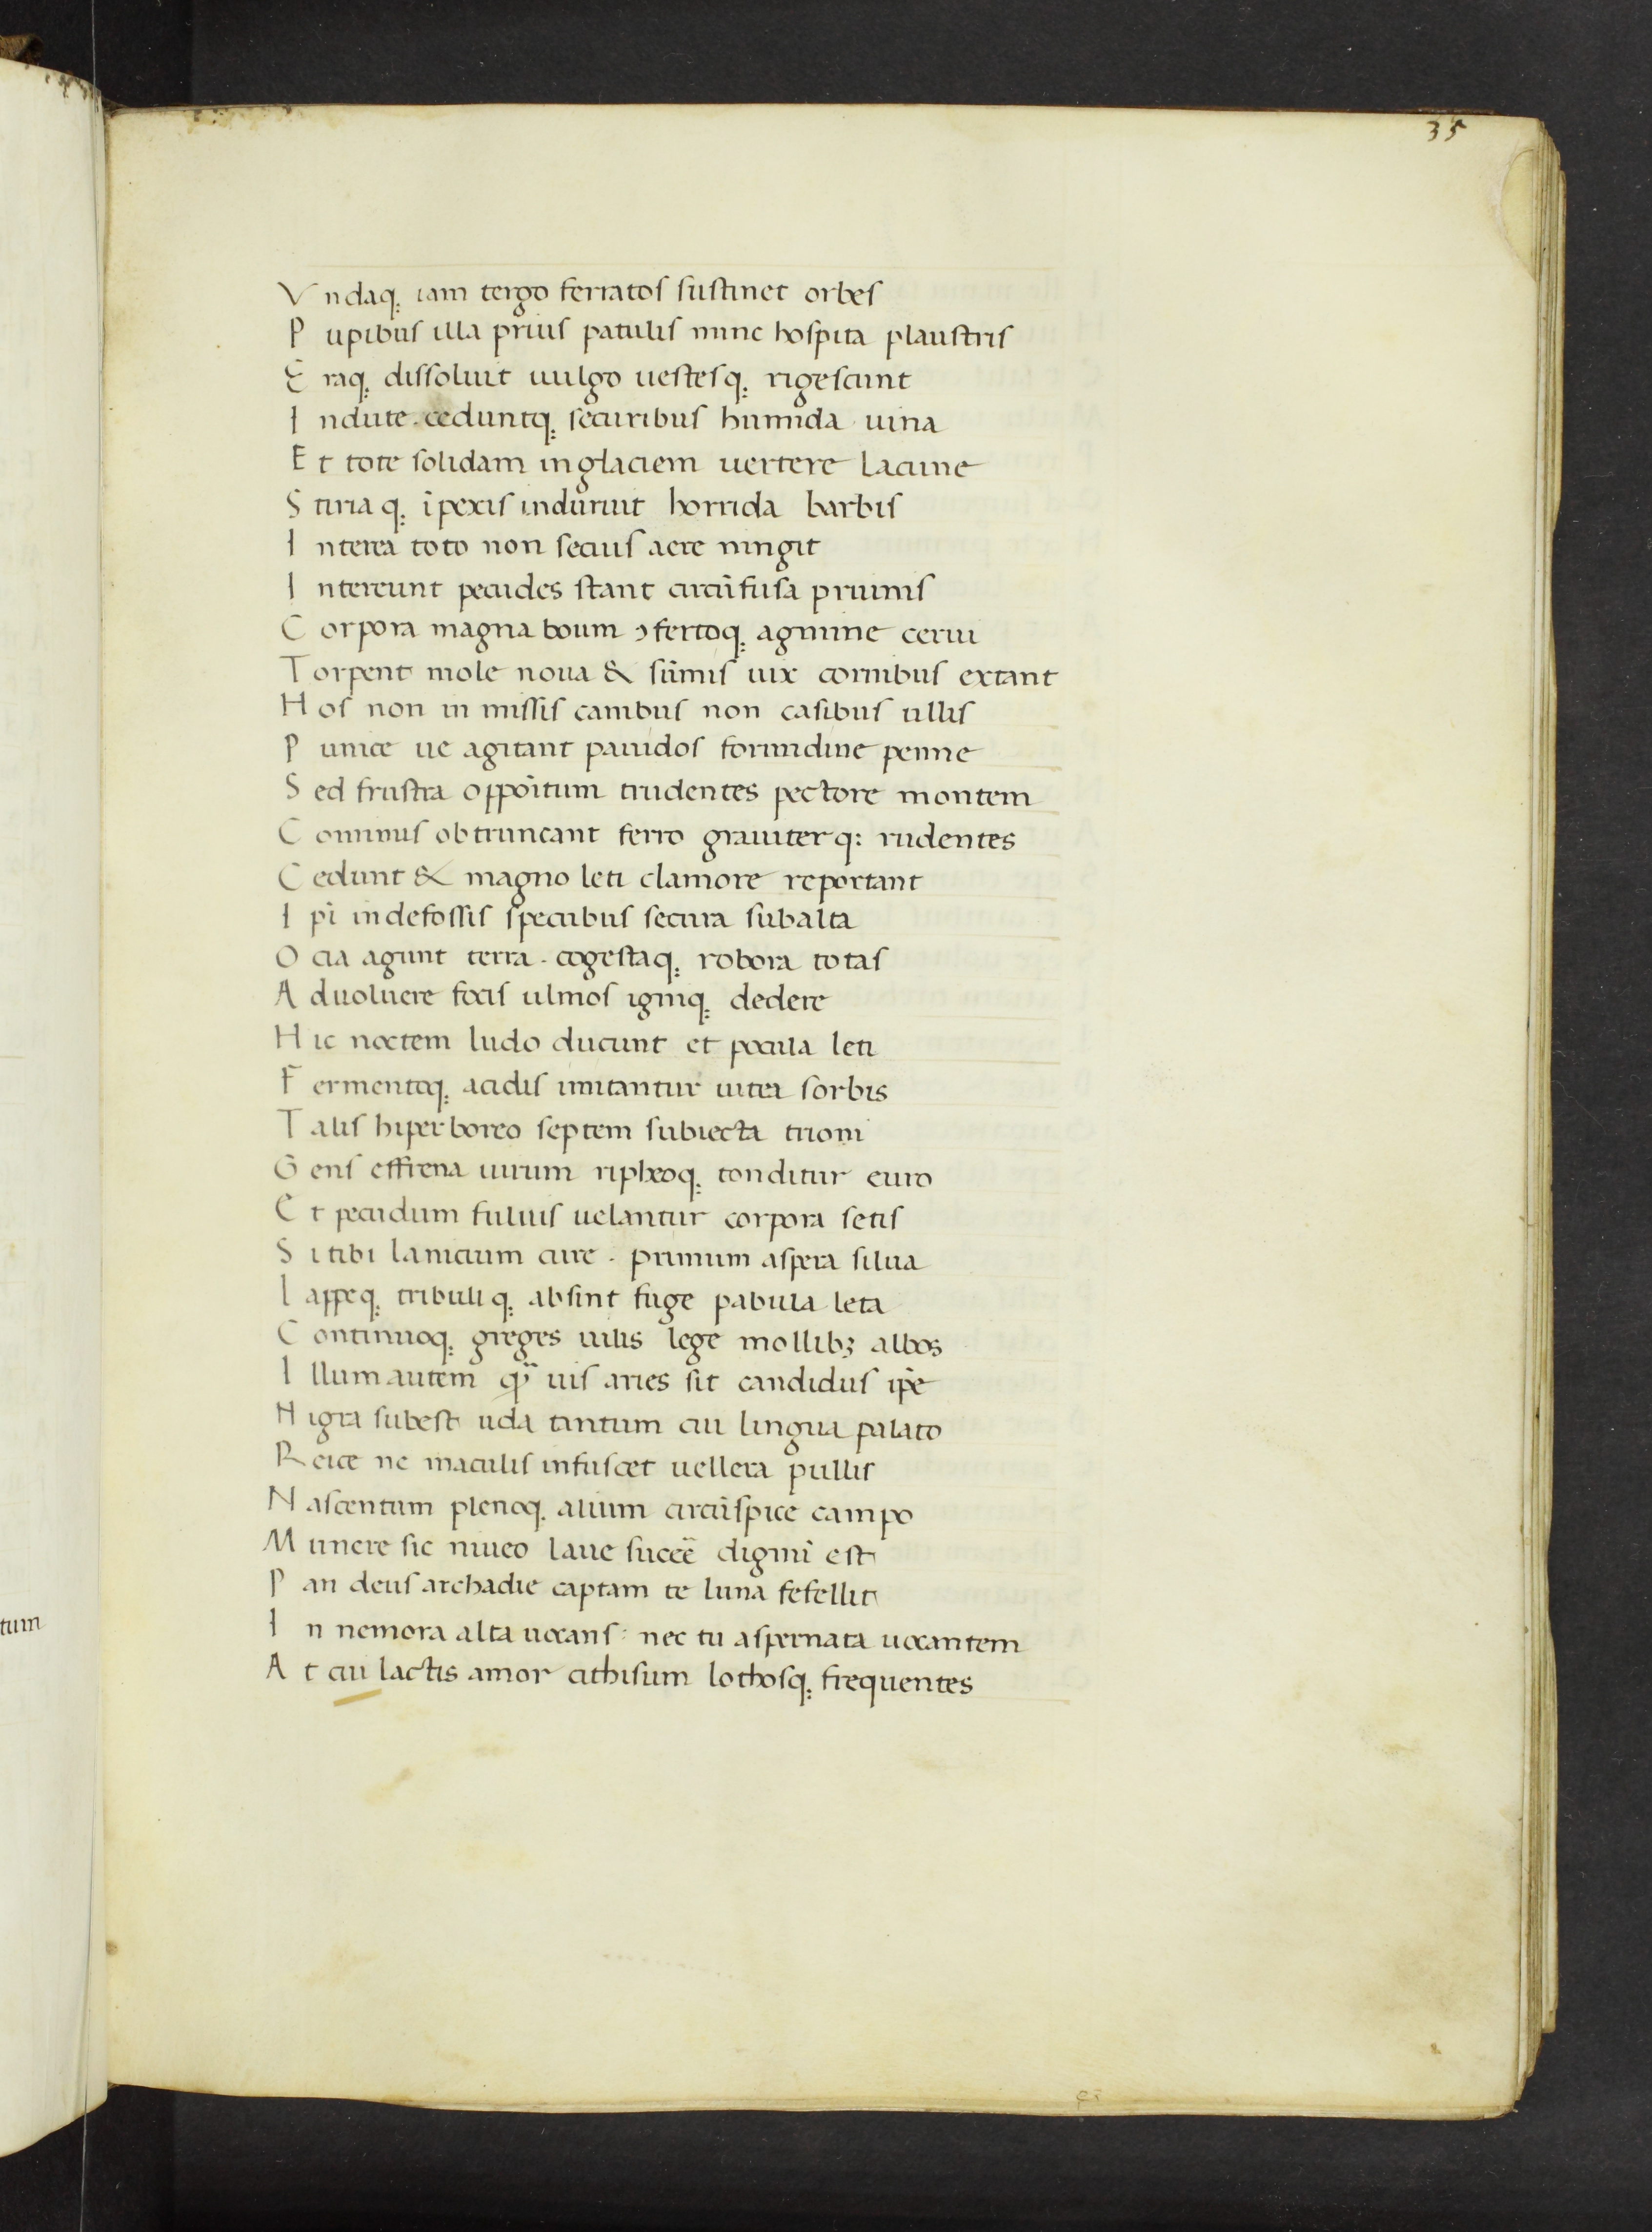 35
Vndaq; iam tergo ferratos sustinet orbes
Pupibus illa prius patulis nunc hospita plaustris
Eraq; dissoluit uulgo uestesq; rigescunt
Indute. ceduntq; securibus humida uina
Et tote solidam inglaciem uertere lacune
Stiriaq; īpexis induruit horrida barbis
Interea toto non secius aere ningit
Intereunt pecudes stant circūfusa pruinis
Corpora magna boum ꝯfertoq; agmine cerui
Torpent mole noua & sūmis uix cornibus extant
Hos non in missis canibus non casibus ullis
Punice ue agitant pauidos formidine penne
Sed frustra oppoītum trudentes pectore montem
Cominus obtruncant ferro grauiterq: rudentes
Cedunt & magno leti clamore reportant
Ipī indefossis specubus secura subalta
Ocia agunt terra. cogestaq; robora totas
Aduoluere focis ulmos igniq; dedere
Hic noctem ludo ducunt et pocula leti
Fermentoq; acidis imitantur uitea sorbis
Talis hiperboreo septem subiecta trioni
Gens effrena uirum ripheoq; tonditur euro
Et pecudum fuluis uelantur corpora setis
Si tibi lanicium cure. primum aspera silua
Lappeq; tribuliq; absint fuge pabula leta
Continuoq; greges uilis lege mollibꝫ albos
Illum autem qͣuis aries sit candidus ip̄e
Nigra subest uda tantum cui lingua palato
Reice ne maculis infuscet uellera pullis
Nascentum plenoq; alium circūspice campo
Munere sic niueo laue succē dignū est
Pan deus archadie captam te luna fefellit
In nemora alta uocans: nec tu aspernata uocantem
At cui lactis amor cithisum lothosq; frequentes
tum